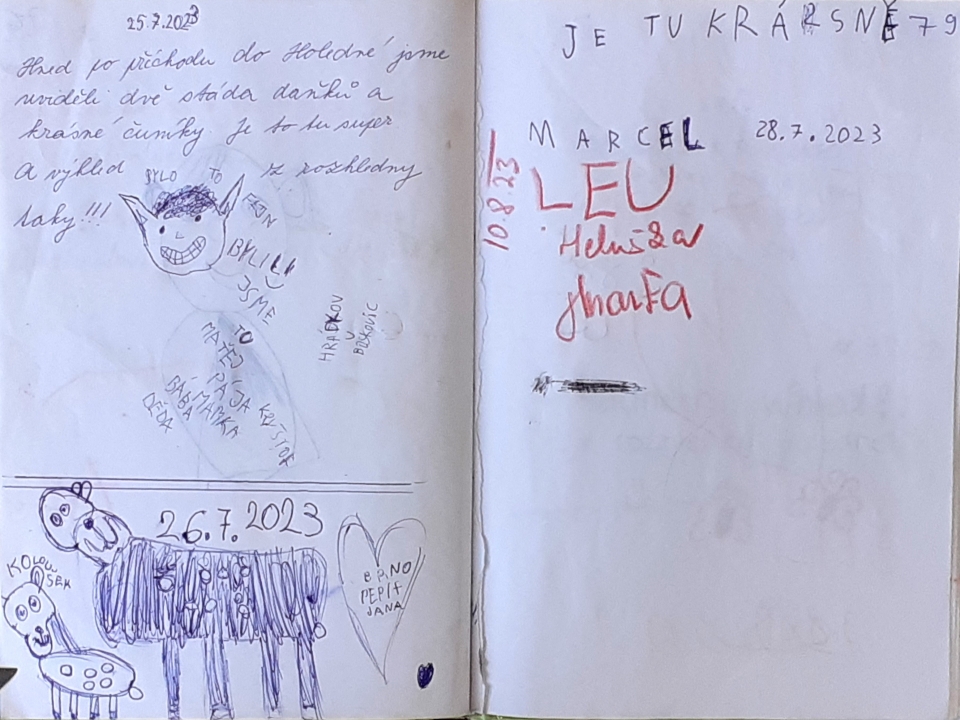 25.7.2023
Hned po příchodu do Holedné jsme
uviděli dvě stáda daňků a
krásné čuníky. Je to tu super
a výhled z rozhledny
taky!!!
BYLO TO
FAJN
BYLI
JSME
TU
MATĚJ
KRYŠTOF
MAMKA
BÁBA
DĚDA
HRÁDKOV
U
BOSKOVIC
26.7.2023
BRNO
PEPÍ+
JANA
JE TU KRÁSNĚ 79
MARCEL 28.7.2023
10.8.23